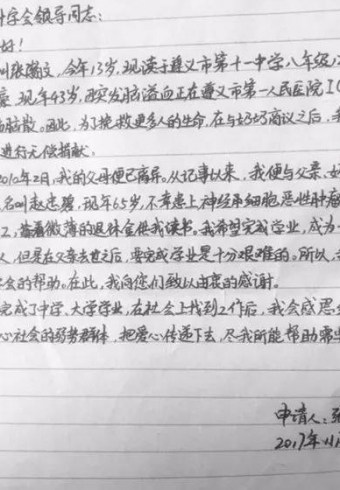 十字会领导同志：
好！
叫张瀚文，今年13岁，现读于遵义市第十一中学八年级
豪，现年43岁，因突发脑溢血正在遵义市第一人民医院IC
脑散。因此，为了挽救更多的生命，在与奶奶商议之后，我
进行无偿捐献。
2010年2月，我的父母便已离异。从记事以来，我便与父亲、奶
名叫赵忠碧，现年65岁，不幸患上神经内细胞恶性肿瘤
工，靠着微薄的退休金供我读书。我希望完成学业，成为一
人，但是在父亲去世之后，要完成学业是十分艰难的。所以，
会的帮助。在此，我向您们致以由衷的感谢。
完成了中学、大学学业，在社会上找到工作后，我会感恩
心社会的弱势群体，把爱心传递下去，尽我所能帮助需
申请人：张
2017年11月